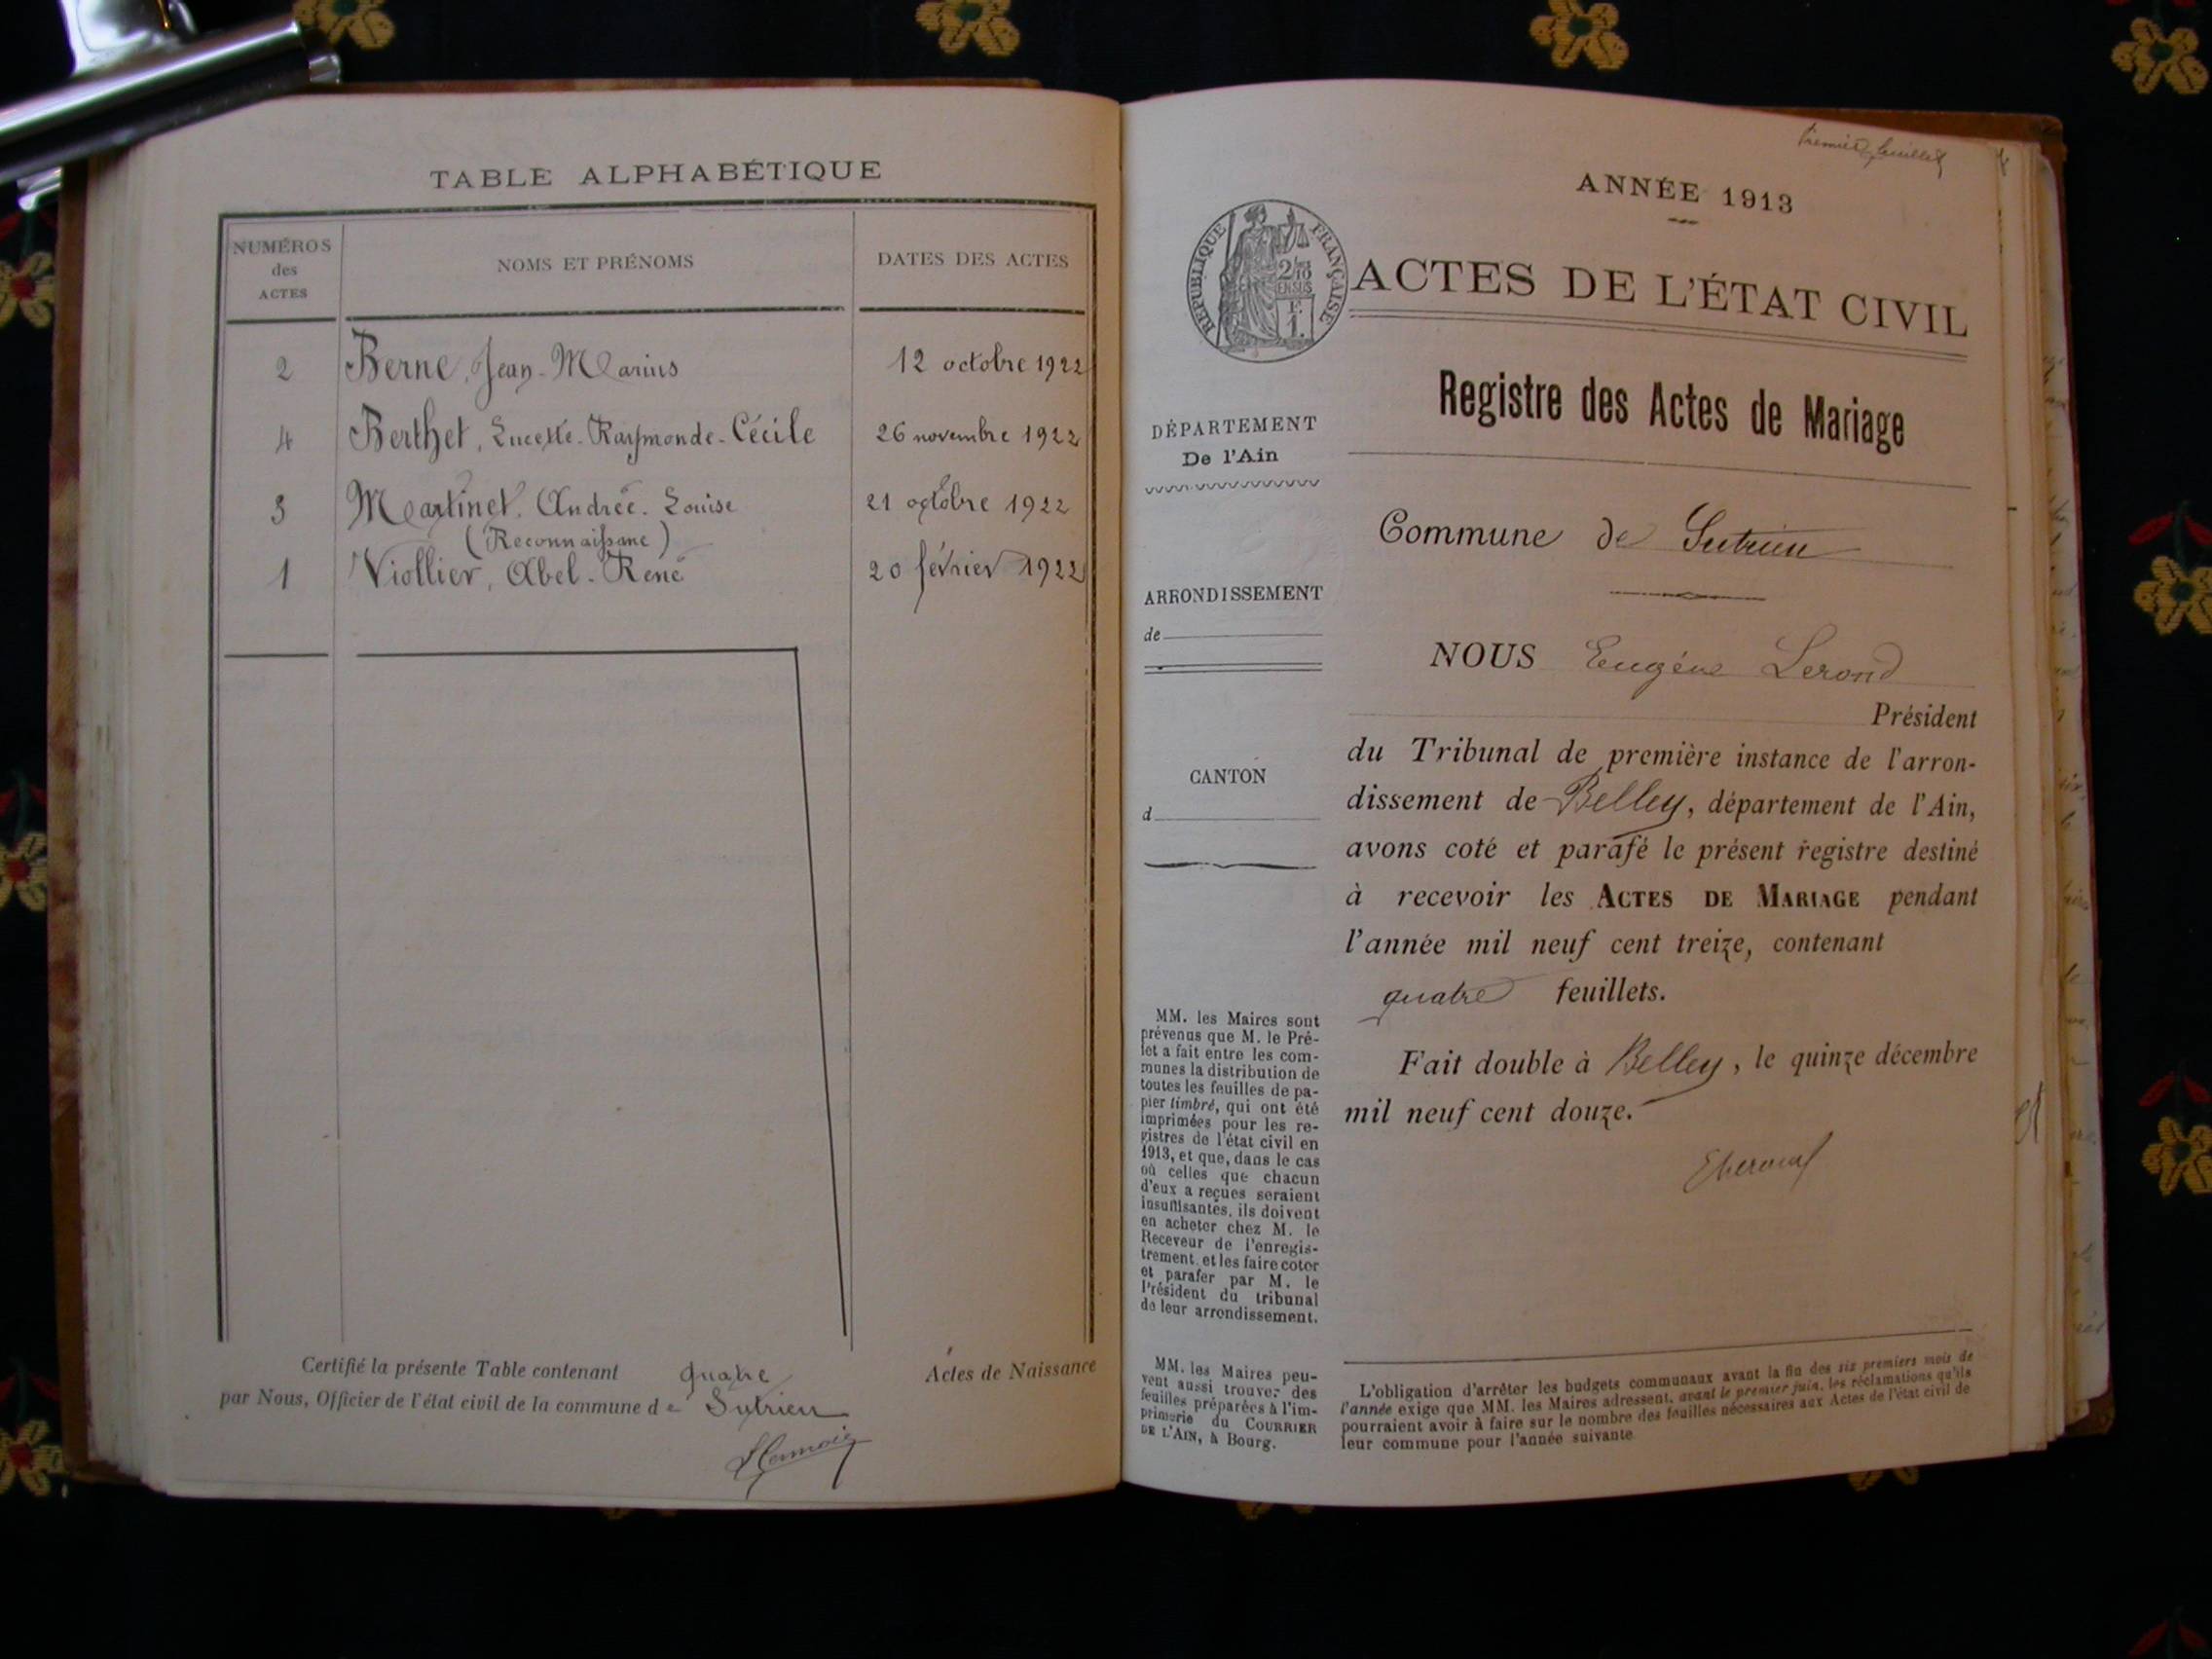 TABLE ALPHABÉTIQUE
NUMÉROS
des
ACTES
NOMS ET PRÉNOMS
DATES DES ACTES
2 Berne, Jean-Marius 12 octobre 1922
4 Berthet, Raymonde-Cécile 26 novembre 1922
3 Martinet, Andrée-Louise 21 octobre 1922
(Reconnaissance)
1 Viollier, Abel-René 20 février 1922
Certifié la présente Table contenant quatre Actes de Naissance
par Nous, Officier de l'état civil de la commune de Sutrieu
Premier feuillet
ANNÉE 1913
REPUBLIQUE FRANÇAISE
2/10
EN SUS
F.
1.
ACTES DE L'ÉTAT CIVIL
Registre des Actes de Mariage
DÉPARTEMENT
De l'Ain
Commune de Sutrieu
ARRONDISSEMENT
de
NOUS Eugène Lerond
Président
du Tribunal de première instance de l'arron-
CANTON
d
dissement de Belley, département de l'Ain,
avons coté et parafé le présent registre destiné
à recevoir les ACTES DE MARIAGE pendant
l'année mil neuf cent treize, contenant
quatre feuillets.
Fait double à Belley, le quinze décembre
mil neuf cent douze.
ELerond
MM. les Maires sont
prévenus que M. le Pré-
fet a fait entre les com-
munes la distribution de
toutes les feuilles de pa-
pier timbré, qui ont été
imprimées pour les re-
gistres de l'état civil en
1913, et que, dans le cas
où celles que chacun
d'eux a reçues seraient
insuffisantes, ils doivent
en acheter chez M. le
Receveur de l'enregis-
trement et les faire coter
et parafer par M. le
Président du tribunal
de leur arrondissement.
MM. les Maires peu-
vent aussi trouver des
feuilles préparées à l'im-
primerie du COURRIER
DE L'AIN, à Bourg.
L'obligation d'arrêter les budgets communaux avant la fin des six premiers mois de
l'année exige que MM. les Maires adressent, avant le premier juin, les réclamations qu'ils
pourraient avoir à faire sur le nombre des feuilles nécessaires aux Actes de l'état civil de
leur commune pour l'année suivante.